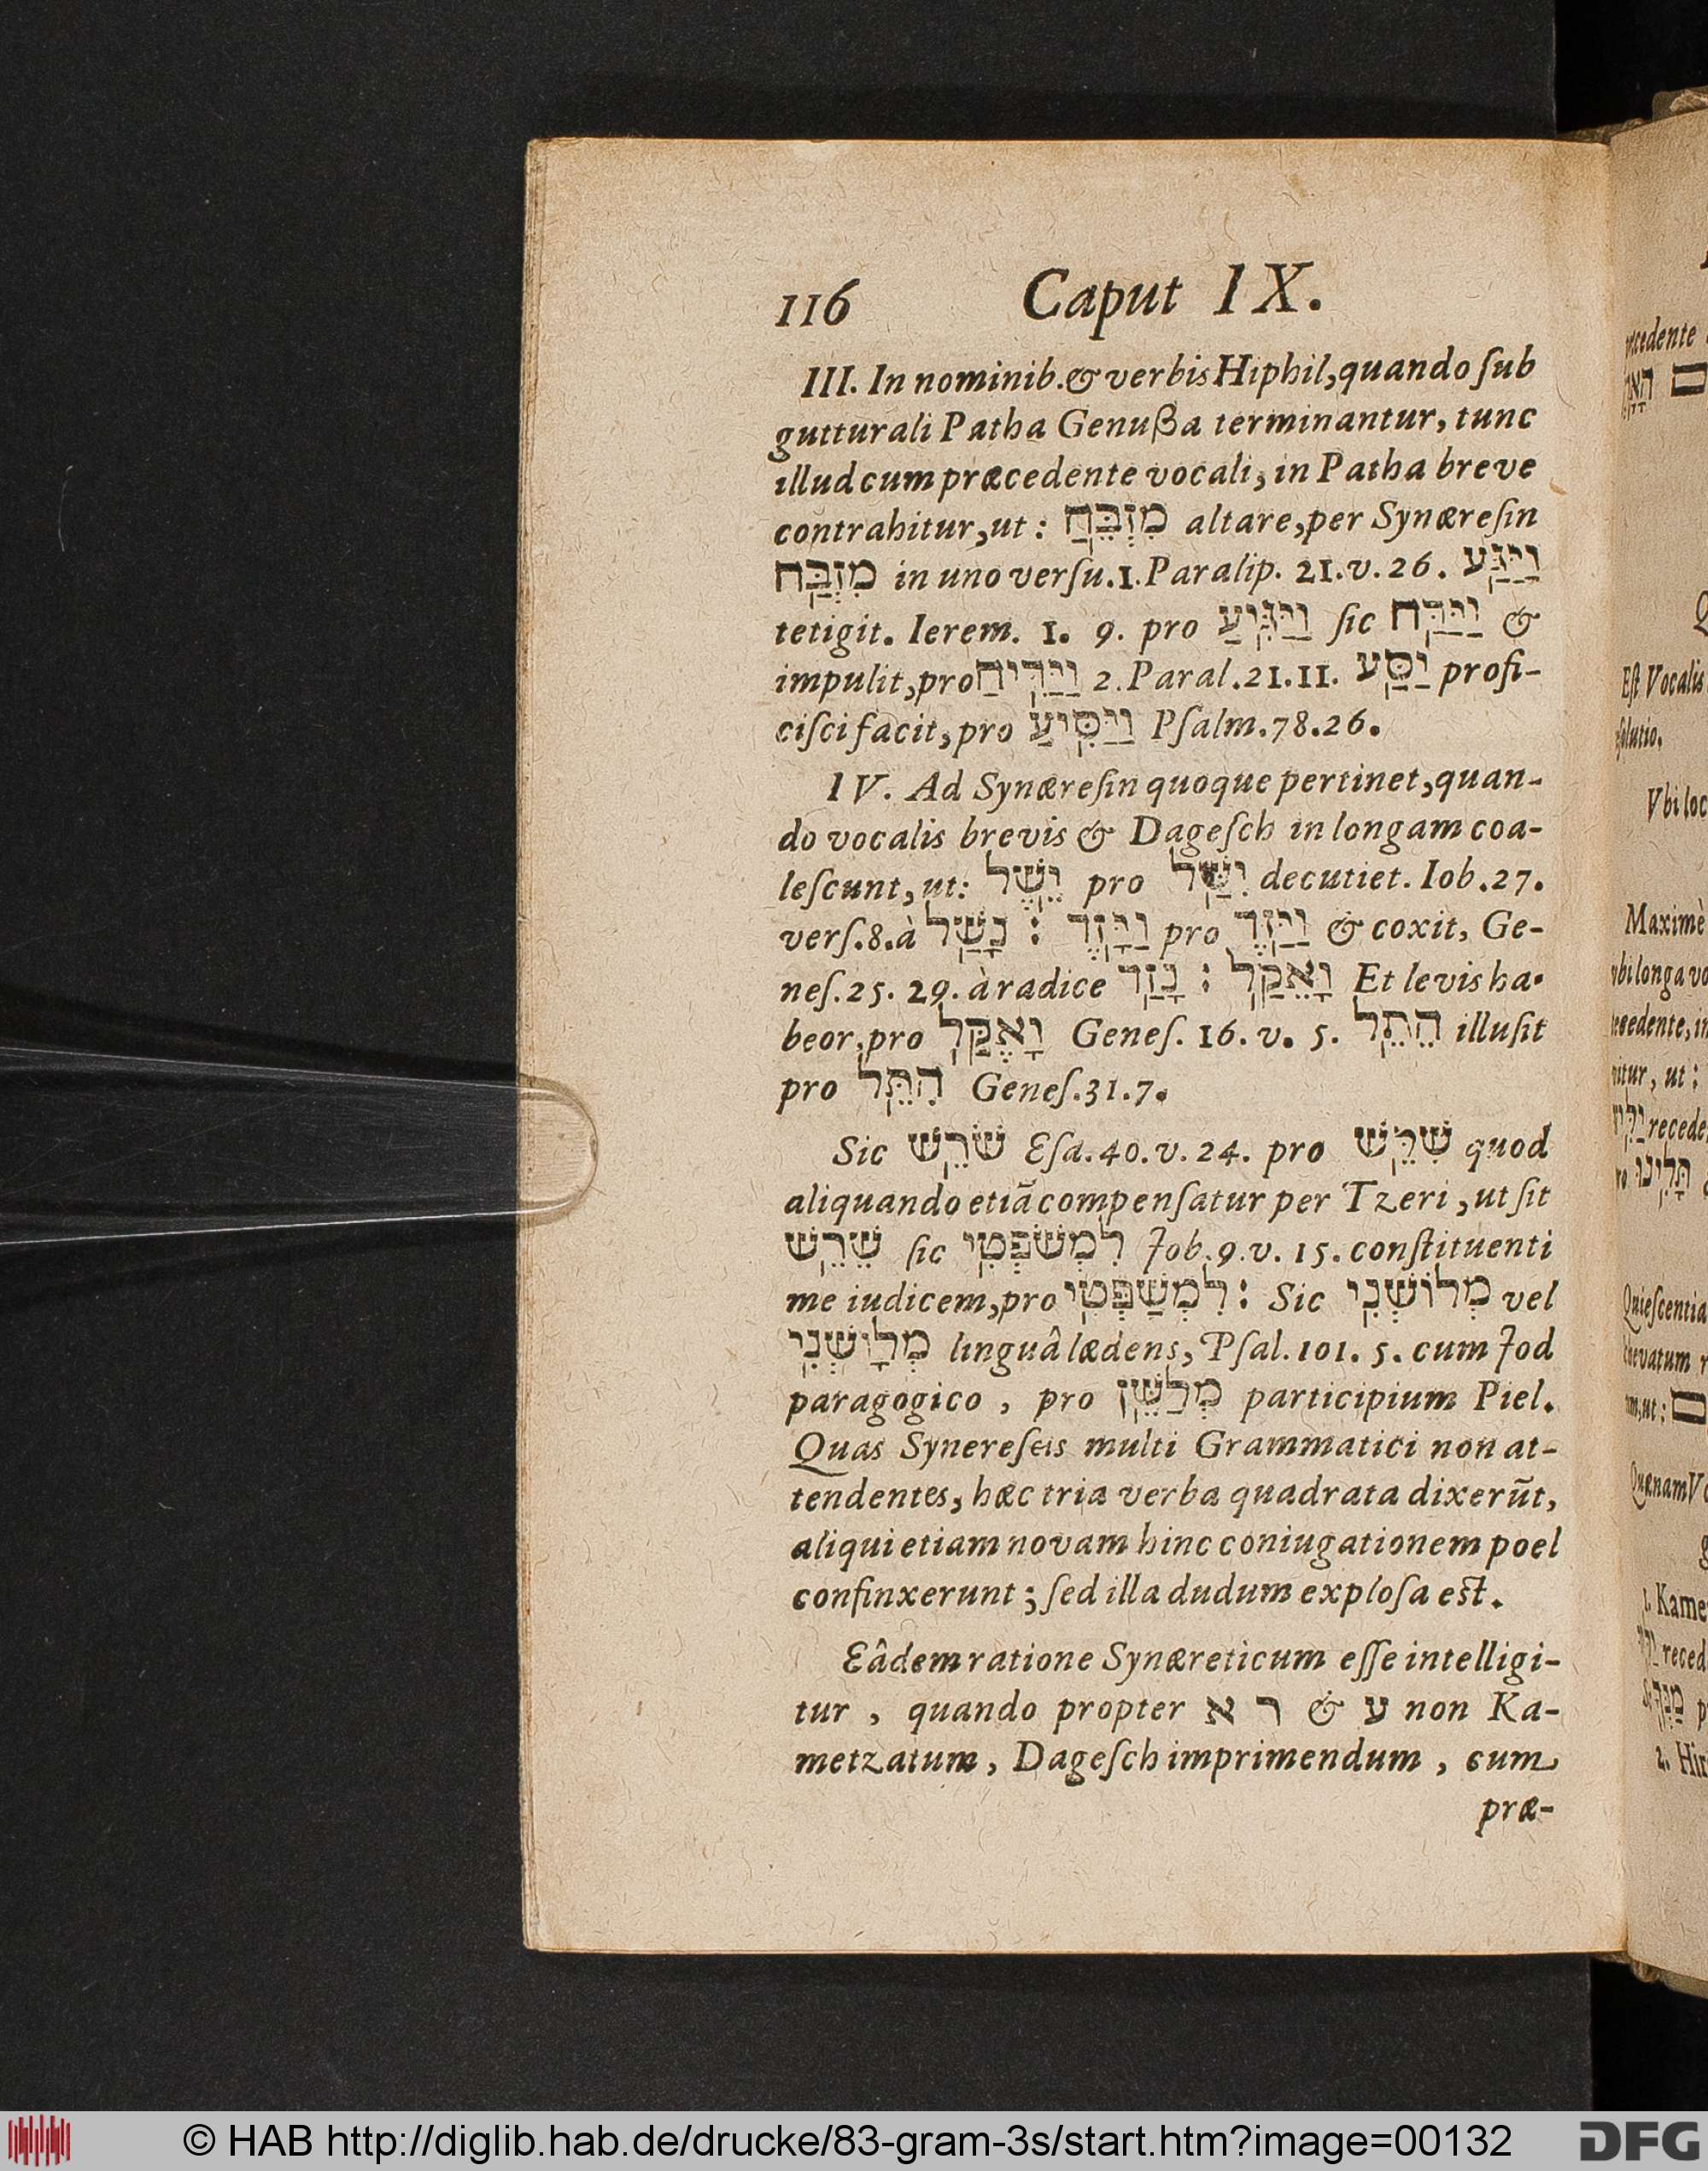 116 Caput IX.
III. In nominib. & verbis Hiphil, quando ſub
gutturali Patha Genußa terminantur, tunc
illud cum præcedente vocali, in Patha breve
contrahitur, ut: מִזְבֵּחַ altare, per Synæreſin
מִזְבַּח in uno verſu. 1. Paralip. 21. v. 26. וַיַּגַּע
tetigit. Ierem. 1. 9. pro וַיַּגִּיעַ ſic וַיַּדַּח &
impulit, pro וַיַּדִּיחַ 2. Paral. 21. 11. יַסַּע profi-
ciſci facit, pro וַיַּסִּיעַ Pſalm. 78. 26.
IV. Ad Synæreſin quoque pertinet, quan-
do vocalis brevis & Dageſch in longam coa-
leſcunt, ut: יֵשֶׁל pro יִשַּׁל decutiet. Iob. 27.
verſ. 8. à נָשַׁל : וַיָּזֶד pro וַיַּזֶּד & coxit, Ge-
neſ. 25. 29. à radice נָזַד : וָאֵקַל Et levis ha-
beor, pro וָאֶקַּל Geneſ. 16. v. 5. הֵתֵל illuſit
pro הִתֵּל Geneſ. 31. 7.
Sic שֹׁרֵשׁ Eſa. 40. v. 24. pro שִׁרֵּשׁ quod
aliquando etiā compenſatur per Tzeri, ut ſit
שֵׁרֵשׁ ſic לִמְשֹׁפְטִי Job. 9. v. 15. conſtituenti
me iudicem, pro לִמְשַׁפְּטִי : Sic מְלוֹשְׁנִי vel
מְלָוְשְׁנִי linguâ lædens, Pſal. 101. 5. cum Jod
paragogico, pro מְלַשֵּׁן participium Piel.
Quas Synereſeis multi Grammatici non at-
tendentes, hæc tria verba quadrata dixerūt,
aliqui etiam novam hinc coniugationem poel
confinxerunt; ſed illa dudum exploſa eſt.
Eâdem ratione Synæreticum eſſe intelligi-
tur, quando propter א ר & ע non Ka-
metzatum, Dageſch imprimendum, cum
præ-
© HAB http://diglib.hab.de/drucke/83-gram-3s/start.htm?image=00132
DFG